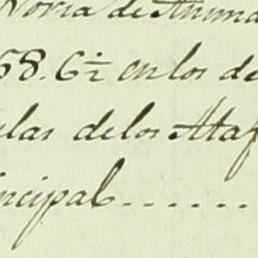 Noria de Anima
58. 6 ½ en los de
elas delos Ataf
incipal......